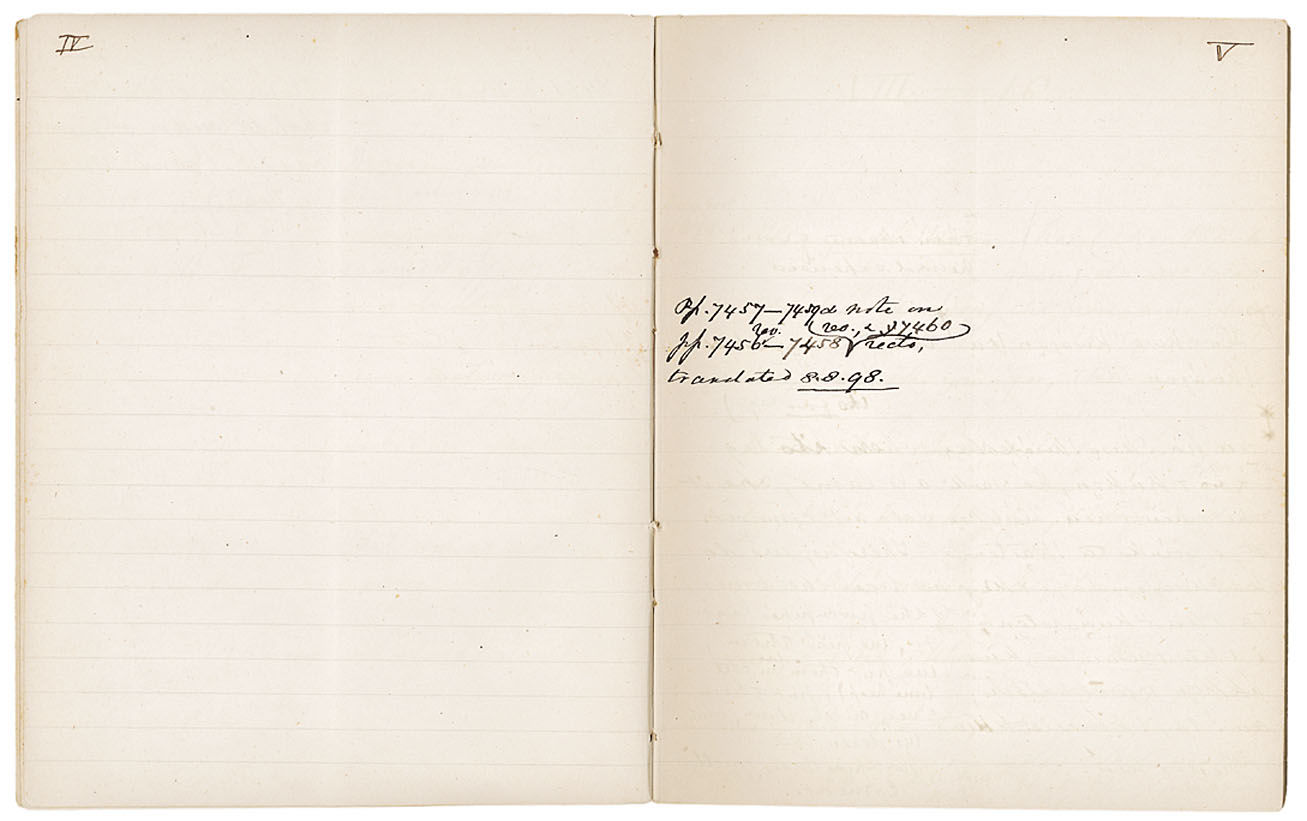 IV
V
Pp. 7457—7459 & note on
rev. (rev., & 7460)
pp. 7456—7458 recto,
translated 8.8.98.